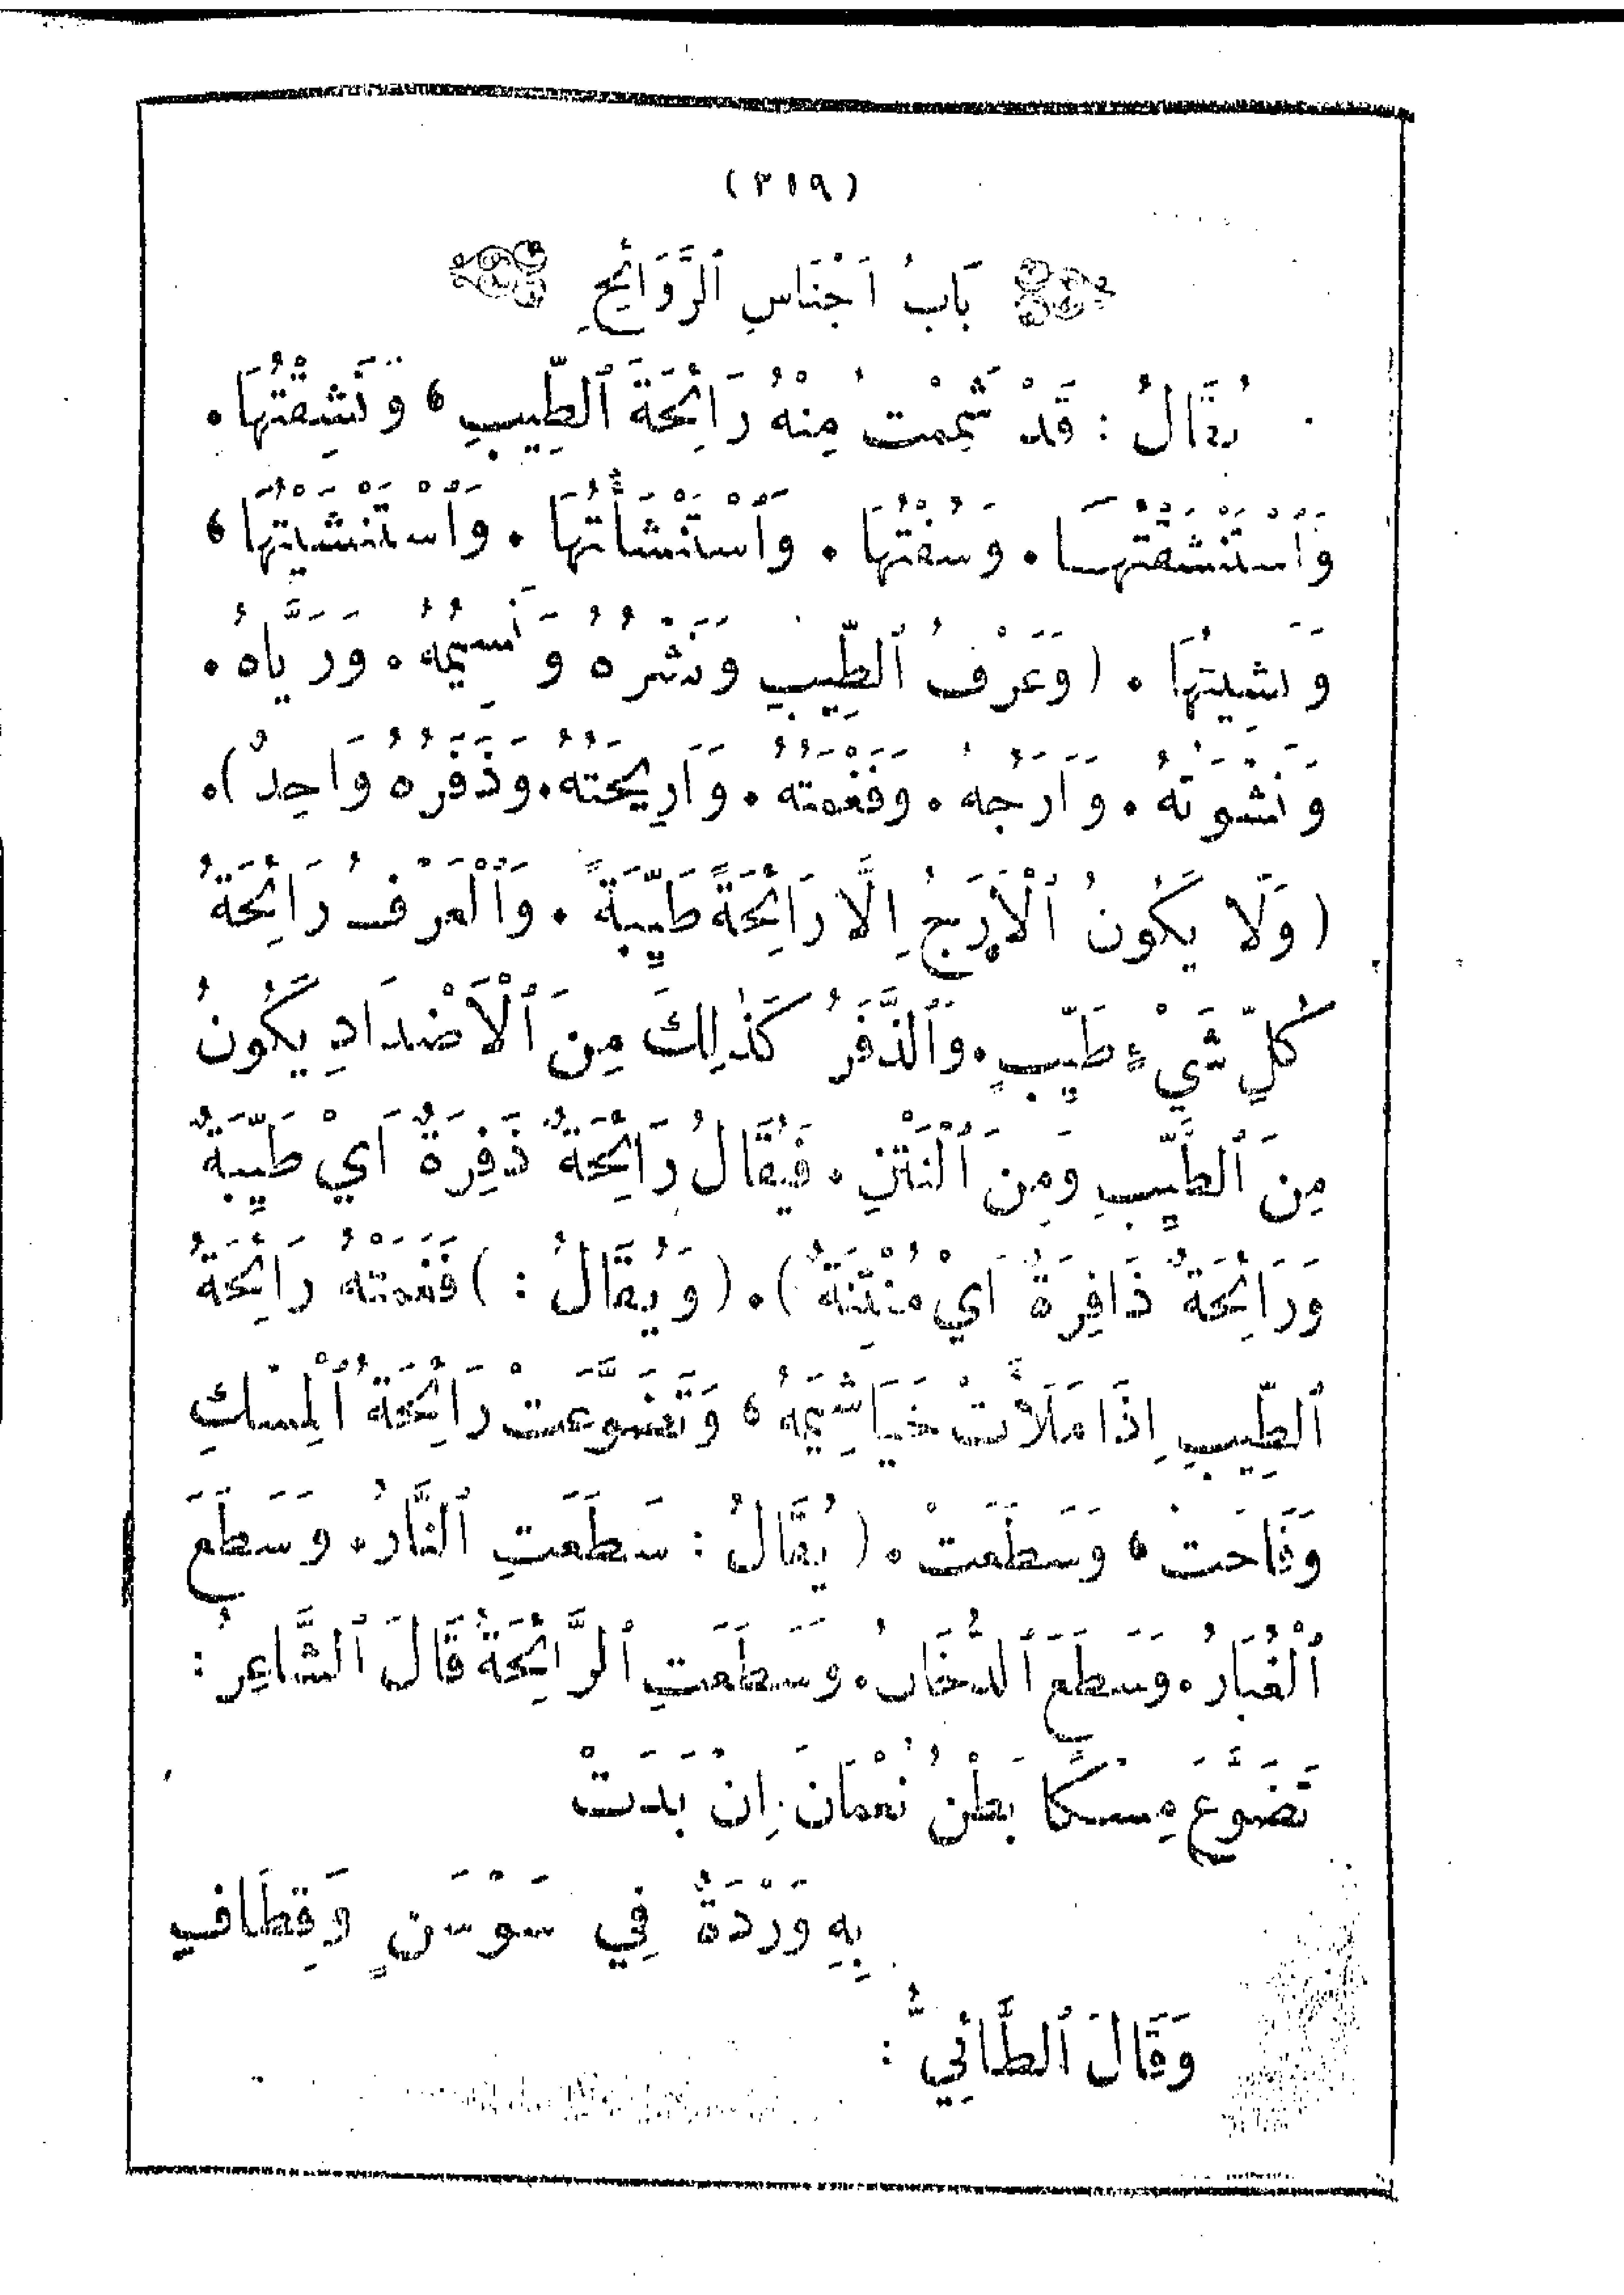 (٢١٩)
بَابُ اَجْنَاسِ ٱلرَّوَائِحِ
يُقَالُ : قَدْ شَمِمْتُ مِنْهُ رَائِحَةَ ٱلطِّيبِ ، وَنَشِقْتُهَا .
وَٱسْتَنْشَقْتُهَا . وَسُفْتُهَا . وَٱسْتَنْشَأْتُهَا . وَٱسْتَنْشَيْتُهَا ،
وَنَشِيتُهَا . (وَعَرْفُ ٱلطِّيبِ وَنَشْرُهُ وَنَسِيمُهُ . وَرَيَّاهُ .
وَنَشْوَتُهُ . وَاَرَجُهُ . وَفَغْمَتُهُ . وَاَرِيحَتُهُ . وَذَفَرُهُ وَاحِدٌ) .
(وَلَا يَكُونُ ٱلْاَرَجُ اِلَّا رَائِحَةً طَيِّبَةً . وَٱلْعَرْفُ رَائِحَةُ
كُلِّ شَيْءٍ طَيِّبٍ . وَٱلذَّفَرُ كَذٰلِكَ مِنَ ٱلْاَضْدَادِ يَكُونُ
مِنَ ٱلطَّيِّبِ وَمِنَ ٱلْنَتْنِ . فَيُقَالُ رَائِحَةٌ ذَفِرَةٌ اَيْ طَيِّبَةٌ
وَرَائِحَةٌ ذَافِرَةٌ اَيْ مُنْتِنَةٌ) . (وَيُقَالُ :) فَغَمَتْهُ رَائِحَةُ
ٱلطِّيبِ اِذَا مَلَأَتْ خَيَاشِيمَهُ ، وَتَضَوَّعَتْ رَائِحَةُ ٱلْمِسْكِ
وَفَاحَتْ ، وَسَطَعَتْ . (يُقَالُ : سَطَعَتِ ٱلنَّارُ . وَسَطَعَ
ٱلْغُبَارُ . وَسَطَعَ ٱلدُّخَانُ . وَسَطَعَتِ ٱلرَّائِحَةُ قَالَ ٱلشَّاعِرُ :
تَضَوَّعَ مِسْكًا بَطْنُ نُعْمَانَ اِنْ بَدَتْ
بِهِ وَرْدَةٌ فِي سَوْسَنٍ وَقِطَافِ
وَقَالَ ٱلطَّائِيُّ :